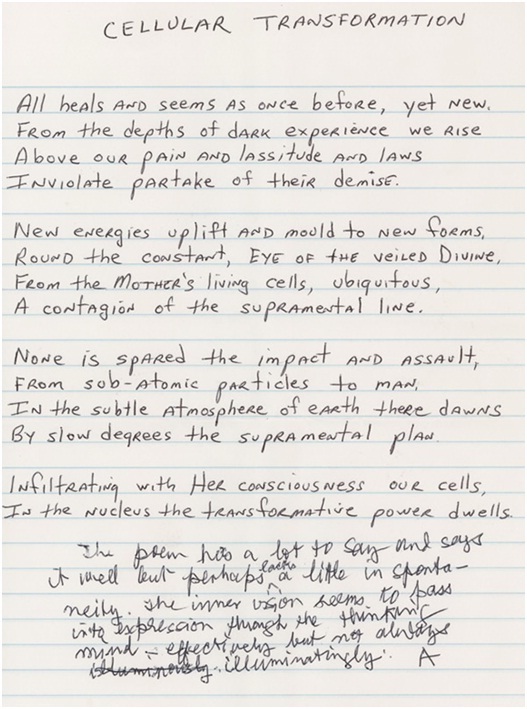 CELLULAR TRANSFORMATION
All heals AND seems AS once before, yet NEW.
FROM the depths of DARK experience we RISE
Above OUR PAIN AND lASSITUDE AND lAWS
INviolate PARTAKE of their demise.
New energies uplift AND mould to NEW forms,
ROUND the CONSTANT, EYE OF THE VEILED DIVINE,
FROM the MOTHER'S living cells, ubiquitous,
A CONTAGION of the SUPRAMENTAL line.
NONE is SPARED the impact AND ASSAULT,
FROM sub-Atomic pARTicles to MAN.
IN the subtle Atmosphere of EARTH there DAWNS
By slow degrees the SUPRAMENTAL plAN.
INfiltRATING with HER CONSCIOUSNESS OUR cells,
IN the NUCLEUS the TRANSFORMATIVE POWER dwells.
The poem has a lot to say and says
it well but perhaps lacks a little in sponta-
neity. The inner vision seems to pass
into expression through the thinking
mind – effectively but not always
illuminously illuminatingly. A